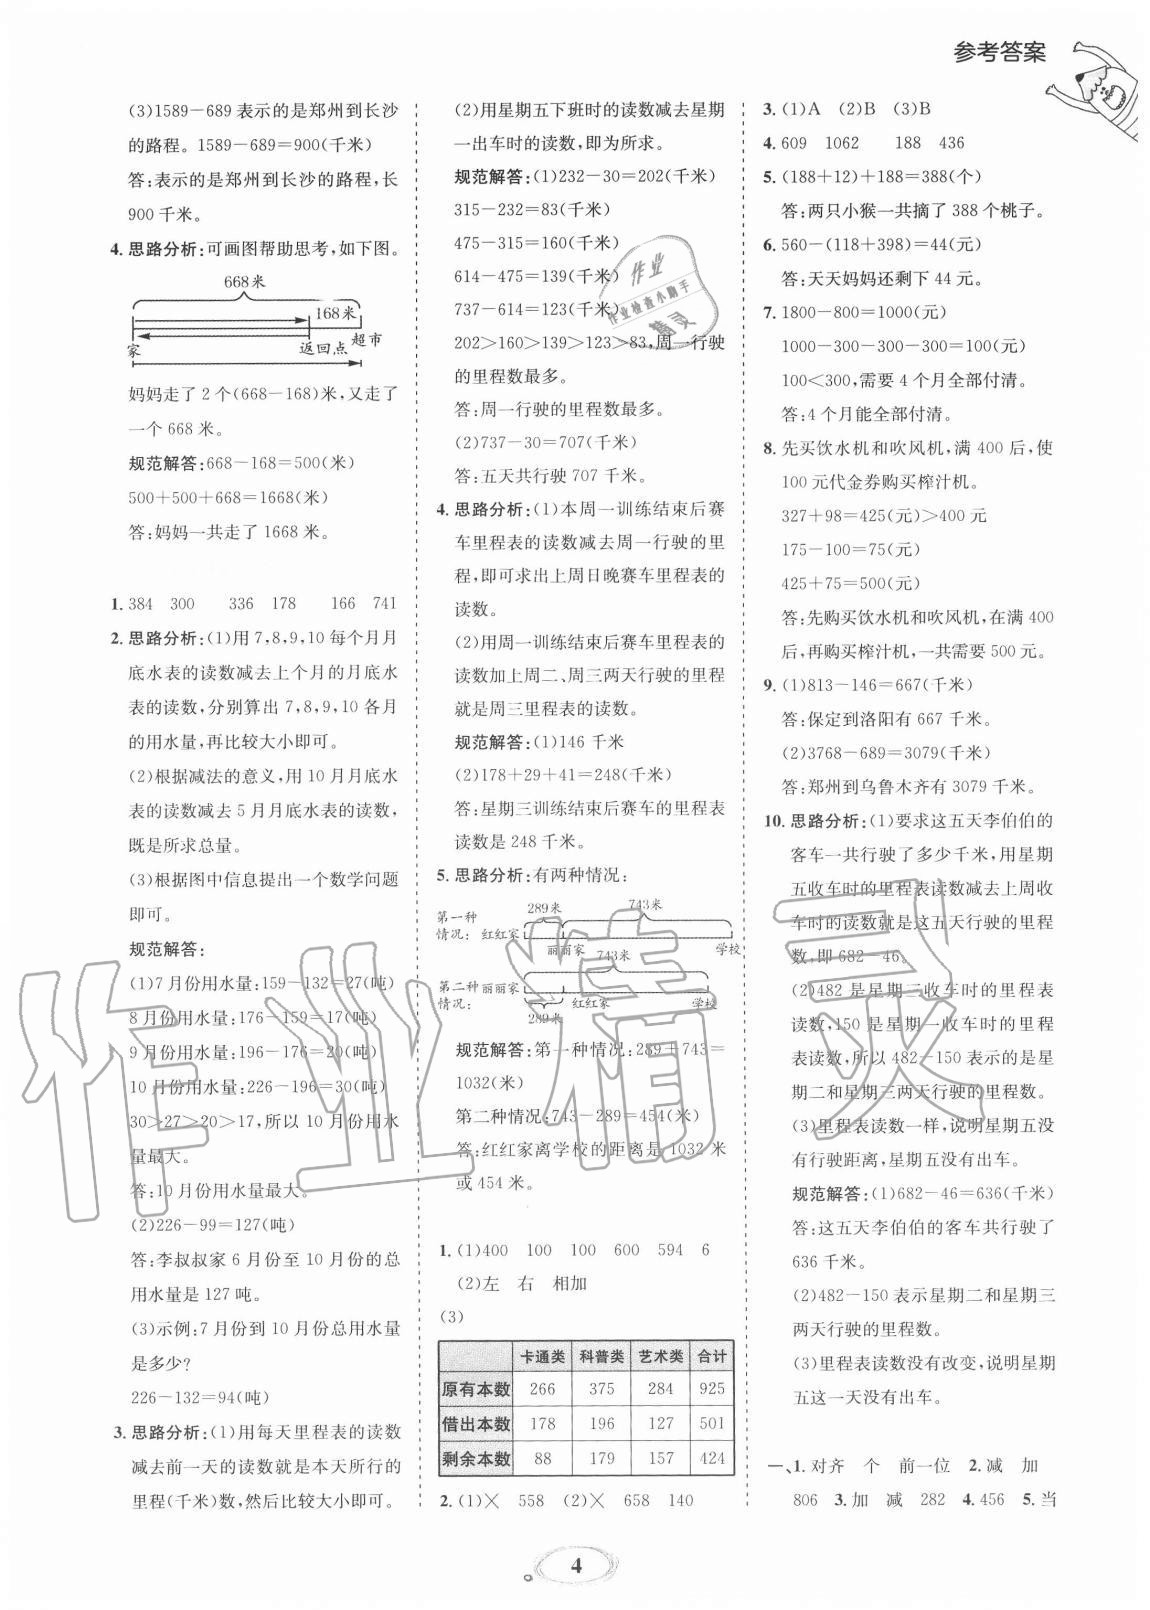 参考答案
(3)1589－689表示的是郑州到长沙
的路程。1589－689＝900(千米)
答:表示的是郑州到长沙的路程,长
900千米。
4. 思路分析:可画图帮助思考,如下图。
668米
168米
家
返回点
超市
妈妈走了2个(668－168)米,又走了
一个668米。
规范解答:668－168＝500(米)
500＋500＋668＝1668(米)
答:妈妈一共走了1668米。
1. 384 300 336 178 166 741
2. 思路分析:(1)用7,8,9,10每个月月
底水表的读数减去上个月的月底水
表的读数,分别算出7,8,9,10各月
的用水量,再比较大小即可。
(2)根据减法的意义,用10月月底水
表的读数减去5月月底水表的读数,
既是所求总量。
(3)根据图中信息提出一个数学问题
即可。
规范解答:
(1)7月份用水量:159－132＝27(吨)
8月份用水量:176－159＝17(吨)
9月份用水量:196－176＝20(吨)
10月份用水量:226－196＝30(吨)
30>27>20>17,所以10月份用水
量最大。
答:10月份用水量最大。
(2)226－99＝127(吨)
答:李叔叔家6月份至10月份的总
用水量是127吨。
(3)示例:7月份到10月份总用水量
是多少?
226－132＝94(吨)
3. 思路分析:(1)用每天里程表的读数
减去前一天的读数就是本天所行的
里程(千米)数,然后比较大小即可。
(2)用星期五下班时的读数减去星期
一出车时的读数,即为所求。
规范解答:(1)232－30＝202(千米)
315－232＝83(千米)
475－315＝160(千米)
614－475＝139(千米)
737－614＝123(千米)
202>160>139>123>83,周一行驶
的里程数最多。
答:周一行驶的里程数最多。
(2)737－30＝707(千米)
答:五天共行驶707千米。
4. 思路分析:(1)本周一训练结束后赛
车里程表的读数减去周一行驶的里
程,即可求出上周日晚赛车里程表的
读数。
(2)用周一训练结束后赛车里程表的
读数加上周二、周三两天行驶的里程
就是周三里程表的读数。
规范解答:(1)146千米
(2)178＋29＋41＝248(千米)
答:星期三训练结束后赛车的里程表
读数是248千米。
5. 思路分析:有两种情况:
289米 743米
第一种
情况: 红红家
丽丽家 学校
743米
第二种 丽丽家
情况: 红红家 学校
289米
规范解答:第一种情况:289＋743＝
1032(米)
第二种情况:743－289＝454(米)
答:红红家离学校的距离是1032米
或454米。
1. (1)400 100 100 600 594 6
(2)左 右 相加
(3)
卡通类 科普类 艺术类 合计
原有本数 266 375 284 925
借出本数 178 196 127 501
剩余本数 88 179 157 424
2. (1)× 558 (2)× 658 140
3. (1)A (2)B (3)B
4. 609 1062 188 436
5. (188＋12)＋188＝388(个)
答:两只小猴一共摘了388个桃子。
6. 560－(118＋398)＝44(元)
答:天天妈妈还剩下44元。
7. 1800－800＝1000(元)
1000－300－300－300＝100(元)
100<300,需要4个月全部付清。
答:4个月能全部付清。
8. 先买饮水机和吹风机,满400后,使用
100元代金券购买榨汁机。
327＋98＝425(元)>400元
175－100＝75(元)
425＋75＝500(元)
答:先购买饮水机和吹风机,在满400
后,再购买榨汁机,一共需要500元。
9. (1)813－146＝667(千米)
答:保定到洛阳有667千米。
(2)3768－689＝3079(千米)
答:郑州到乌鲁木齐有3079千米。
10. 思路分析:(1)要求这五天李伯伯的
客车一共行驶了多少千米,用星期
五收车时的里程表读数减去上周收
车时的读数就是这五天行驶的里程
数,即682－46。
(2)482是星期三收车时的里程表
读数,150是星期一收车时的里程
表读数,所以482－150表示的是星
期二和星期三两天行驶的里程数。
(3)里程表读数一样,说明星期五没
有行驶距离,星期五没有出车。
规范解答:(1)682－46＝636(千米)
答:这五天李伯伯的客车共行驶了
636千米。
(2)482－150表示星期二和星期三
两天行驶的里程数。
(3)里程表读数没有改变,说明星期
五这一天没有出车。
一、1. 对齐 个 前一位 2. 减 加
806 3. 加 减 282 4. 456 5. 当
4
作业
作业检查小助手
精灵
作业精灵